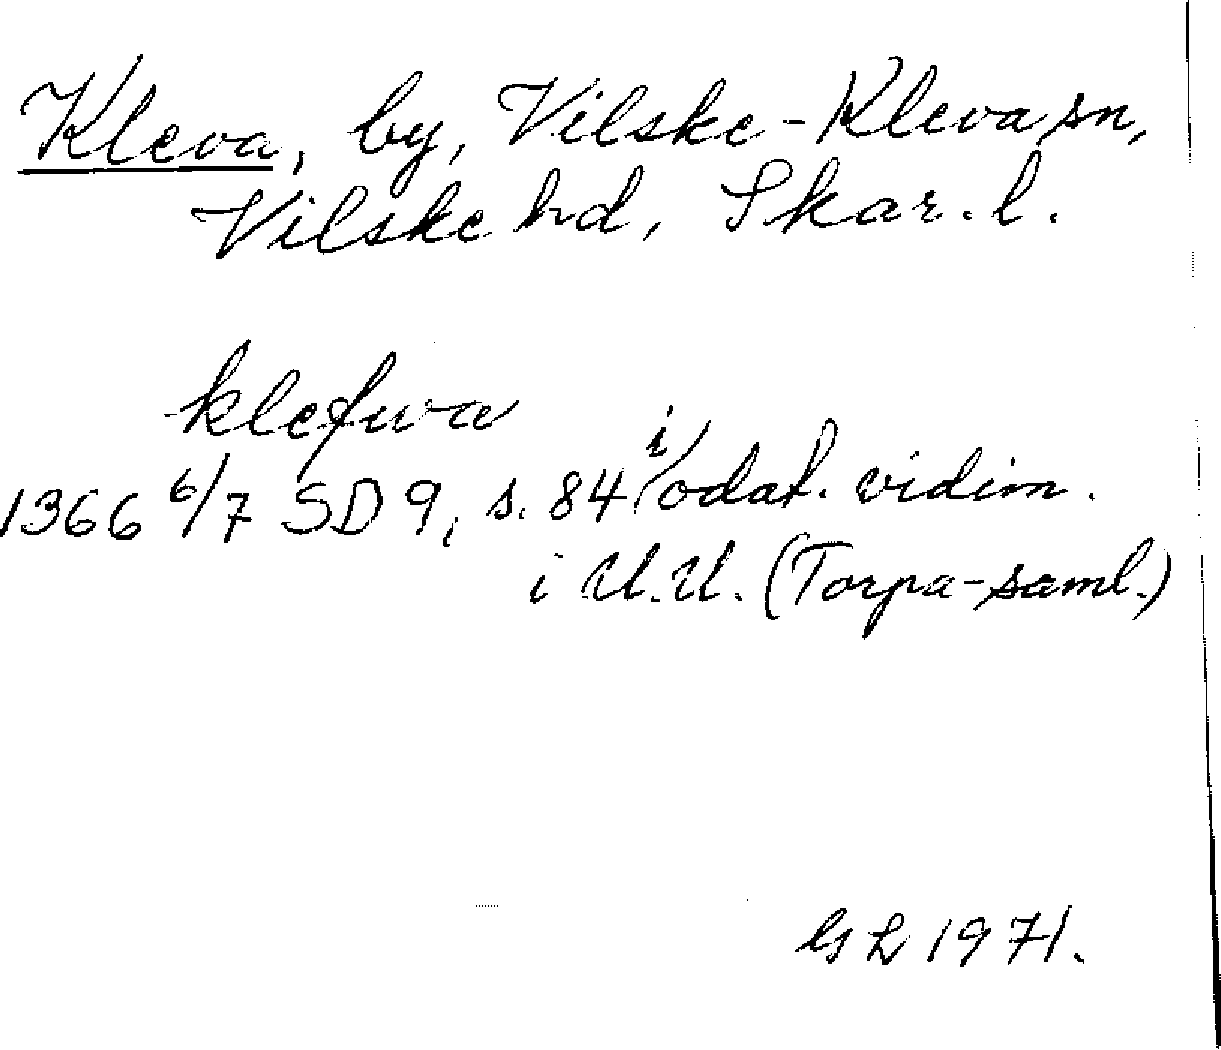 Kleva, by, Vilske-Kleva sn,
Vilske hd, Skar. l.
klefwa
1366 6/7 SD 9, s. 84 i odat. vidim.
i U.U. (Torpa-saml.)
GL 1971.